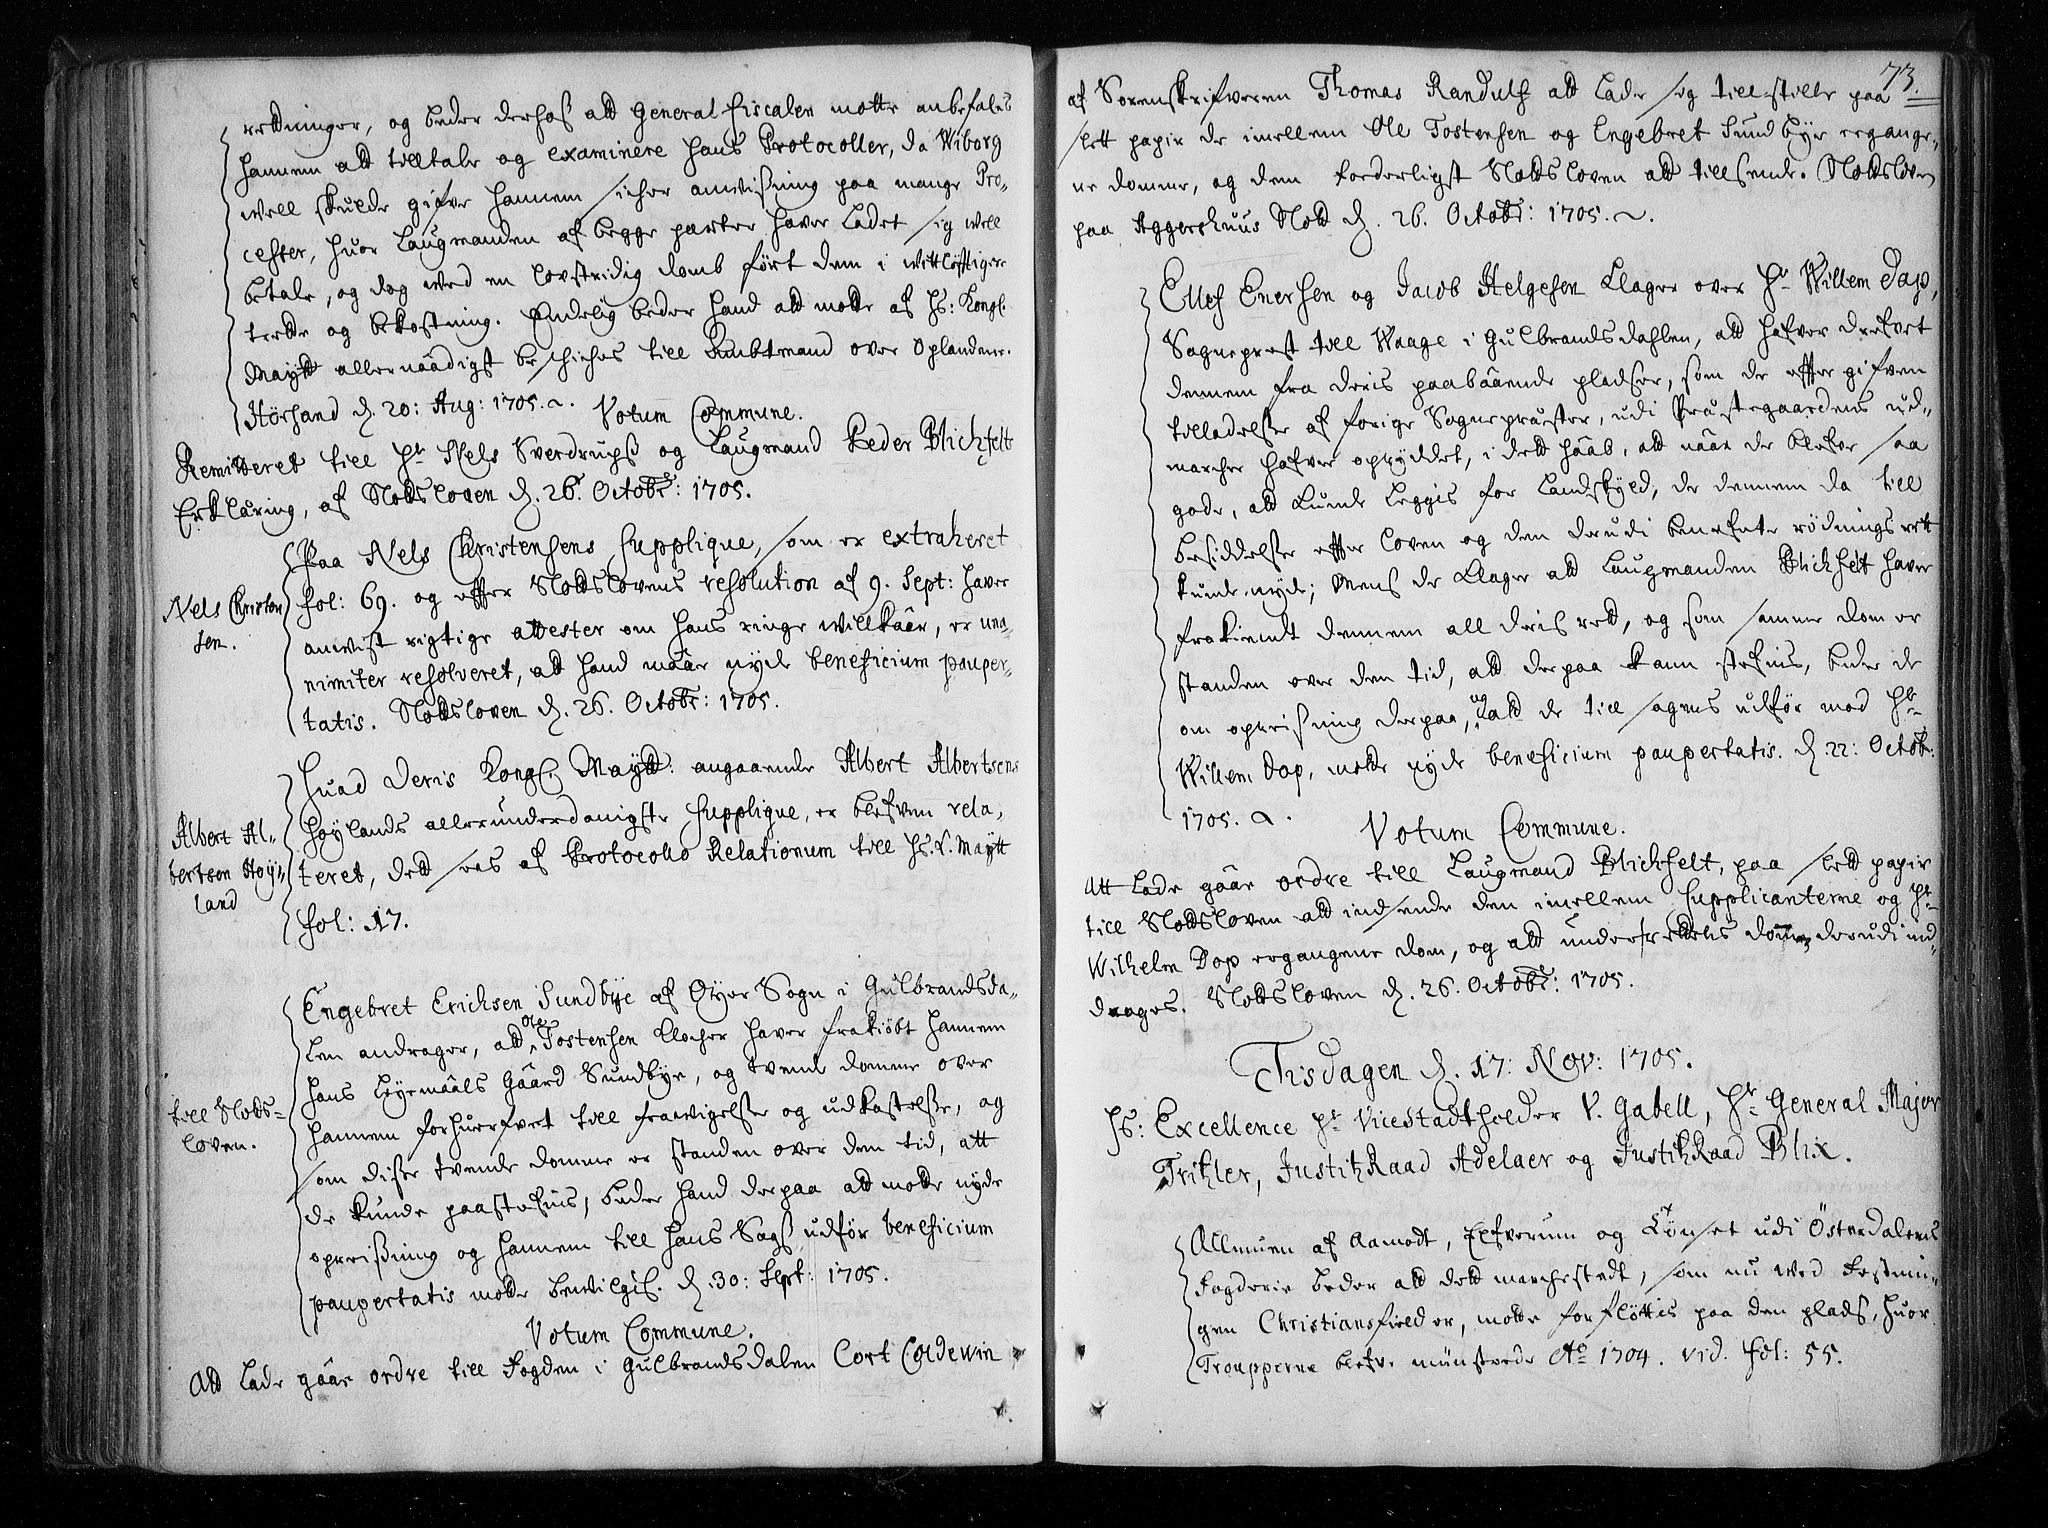 retninger, og beder derhos att General fiscalen motte anbefales
hannem att tilltale og examinere hans Protocoller, da Wiborg
well skulde gifve hannem sicher anvißning paa mange Pro-
cesser, huor Laugmanden af begge parter hafver ladet sig well
betale, og dog wed en lovstridig domb ført dem i wittløfftigere
trette og bekostning. Endelig beder hand att motte af Hs: Kongl.
Maytt allernaadigst beschiches till Ambtmand over Oplandene.
Hörsand d. 20: Aug: 1705.
Votum Commune.
Remitteret till Hr Niels Sverdrups og Laugmand Peder Blichfelt
Erklæring, af Slotsloven d. 26. Octobr: 1705.
Nels Christen
sen.
Paa Nels Christensens Supplique, som er extraheret
fol: 69. og effter Slotslovens resolution af 9. Sept: haver
anvist rigtige attester om hans ringe willkaar, er una-
nimiter resolveret, att hand maae nyde beneficium pauper-
tatis. Slotsloven d. 26. Octobr: 1705.
Albert Al-
bertsen Høy-
land
Huad Deris Kongl. Maytt: angaaende Albert Albertsens
Høylands allerunderdanigste Supplique, er blefven rela-
teret, dett sees af Protocollo Relationum till Hs. K. Maytt
fol: 17.
till Slots-
loven.
Engebret Erichsen Sundbye af Øyer Sogn i Gulbrandsda-
len andrager, att Ole Tostensen Klocher haver frakiöbt hannem
hans Leyemaals Gaard Sundbye, og tvende domme over
hannem forhuerfvet till fravigelse og udkastelse, og
som disse tvende domme er standen over den tid, att
de kunde paastefnis, beder hand derpaa att motte nyde
opreisning og hannem till hans Sags udfør beneficium
paupertatis motte bevilgis. d. 30: Sept: 1705.
Votum Commune.
Att lade gaae ordre till Fogden i Gulbrandsdalen Cort Coldewin
73.
af Sorenskrifveren Thomas Randulf att lade sig tillstille paa
slett papir de imellem Ole Tostensen og Engebret Sundbye ergange-
ne domme, og dem forderligst Slotsloven att tillsende. Slotsloven
paa Aggershuus Slott d. 26. Octobr: 1705.
Ellef Enersen og Jacob Helgesen klager over Hr Willem Dap,
Sogneprest till Waage i Gulbrandsdahlen, att hafver drefvet
dennem fra deris paaboende pladser, som de effter gifven
tilladelse af forige Sognepræster, udi Præstegaardens ud-
marcher hafver opryddet, i dett haab, att naar de blefve saa
gode, att kunde leggis for Landskyld, de dennem da till
besiddelse effter loven og den derudi benefnte rødnings rett
kunde nyde; Mens de klager att Laugmanden Blichfelt haver
frakiendt dennem all deris rett, og som samme dom er
standen over den tid, att derpaa kann stefnis, beder de
om opreisning derpaa, og att de till sagens udfør mod Hr
Willem Dop, motte nyde beneficium paupertatis. d. 22: Octobr:
1705.
Votum Commune.
Att lade gaae ordre till Laugmand Blichfelt, paa slett papir
till Slotsloven att indsende den imellem Supplicanterne og Hr
Wilhelm Dop ergangene dom, og att underrettis domme derudi ind-
drages. Slotsloven d. 26. Octobr: 1705.
Tisdagen d. 17: Nov: 1705.
Hs: Excellence Hr Vicestadtholder V. Gabell, Hr General Major
Trihler, JustitzRaad Adelaer og JustitzRaad Blix.
Allmuen af Aamodt, Elfverum og Lønset udi Österdalens
Fogderie beder att dett marchestedt, som nu wed Festnin-
gen Christiansfield er, motte forfløttis paa den plads, huor
Troupperne blefve münstrede Ao 1704. vid. fol: 55.